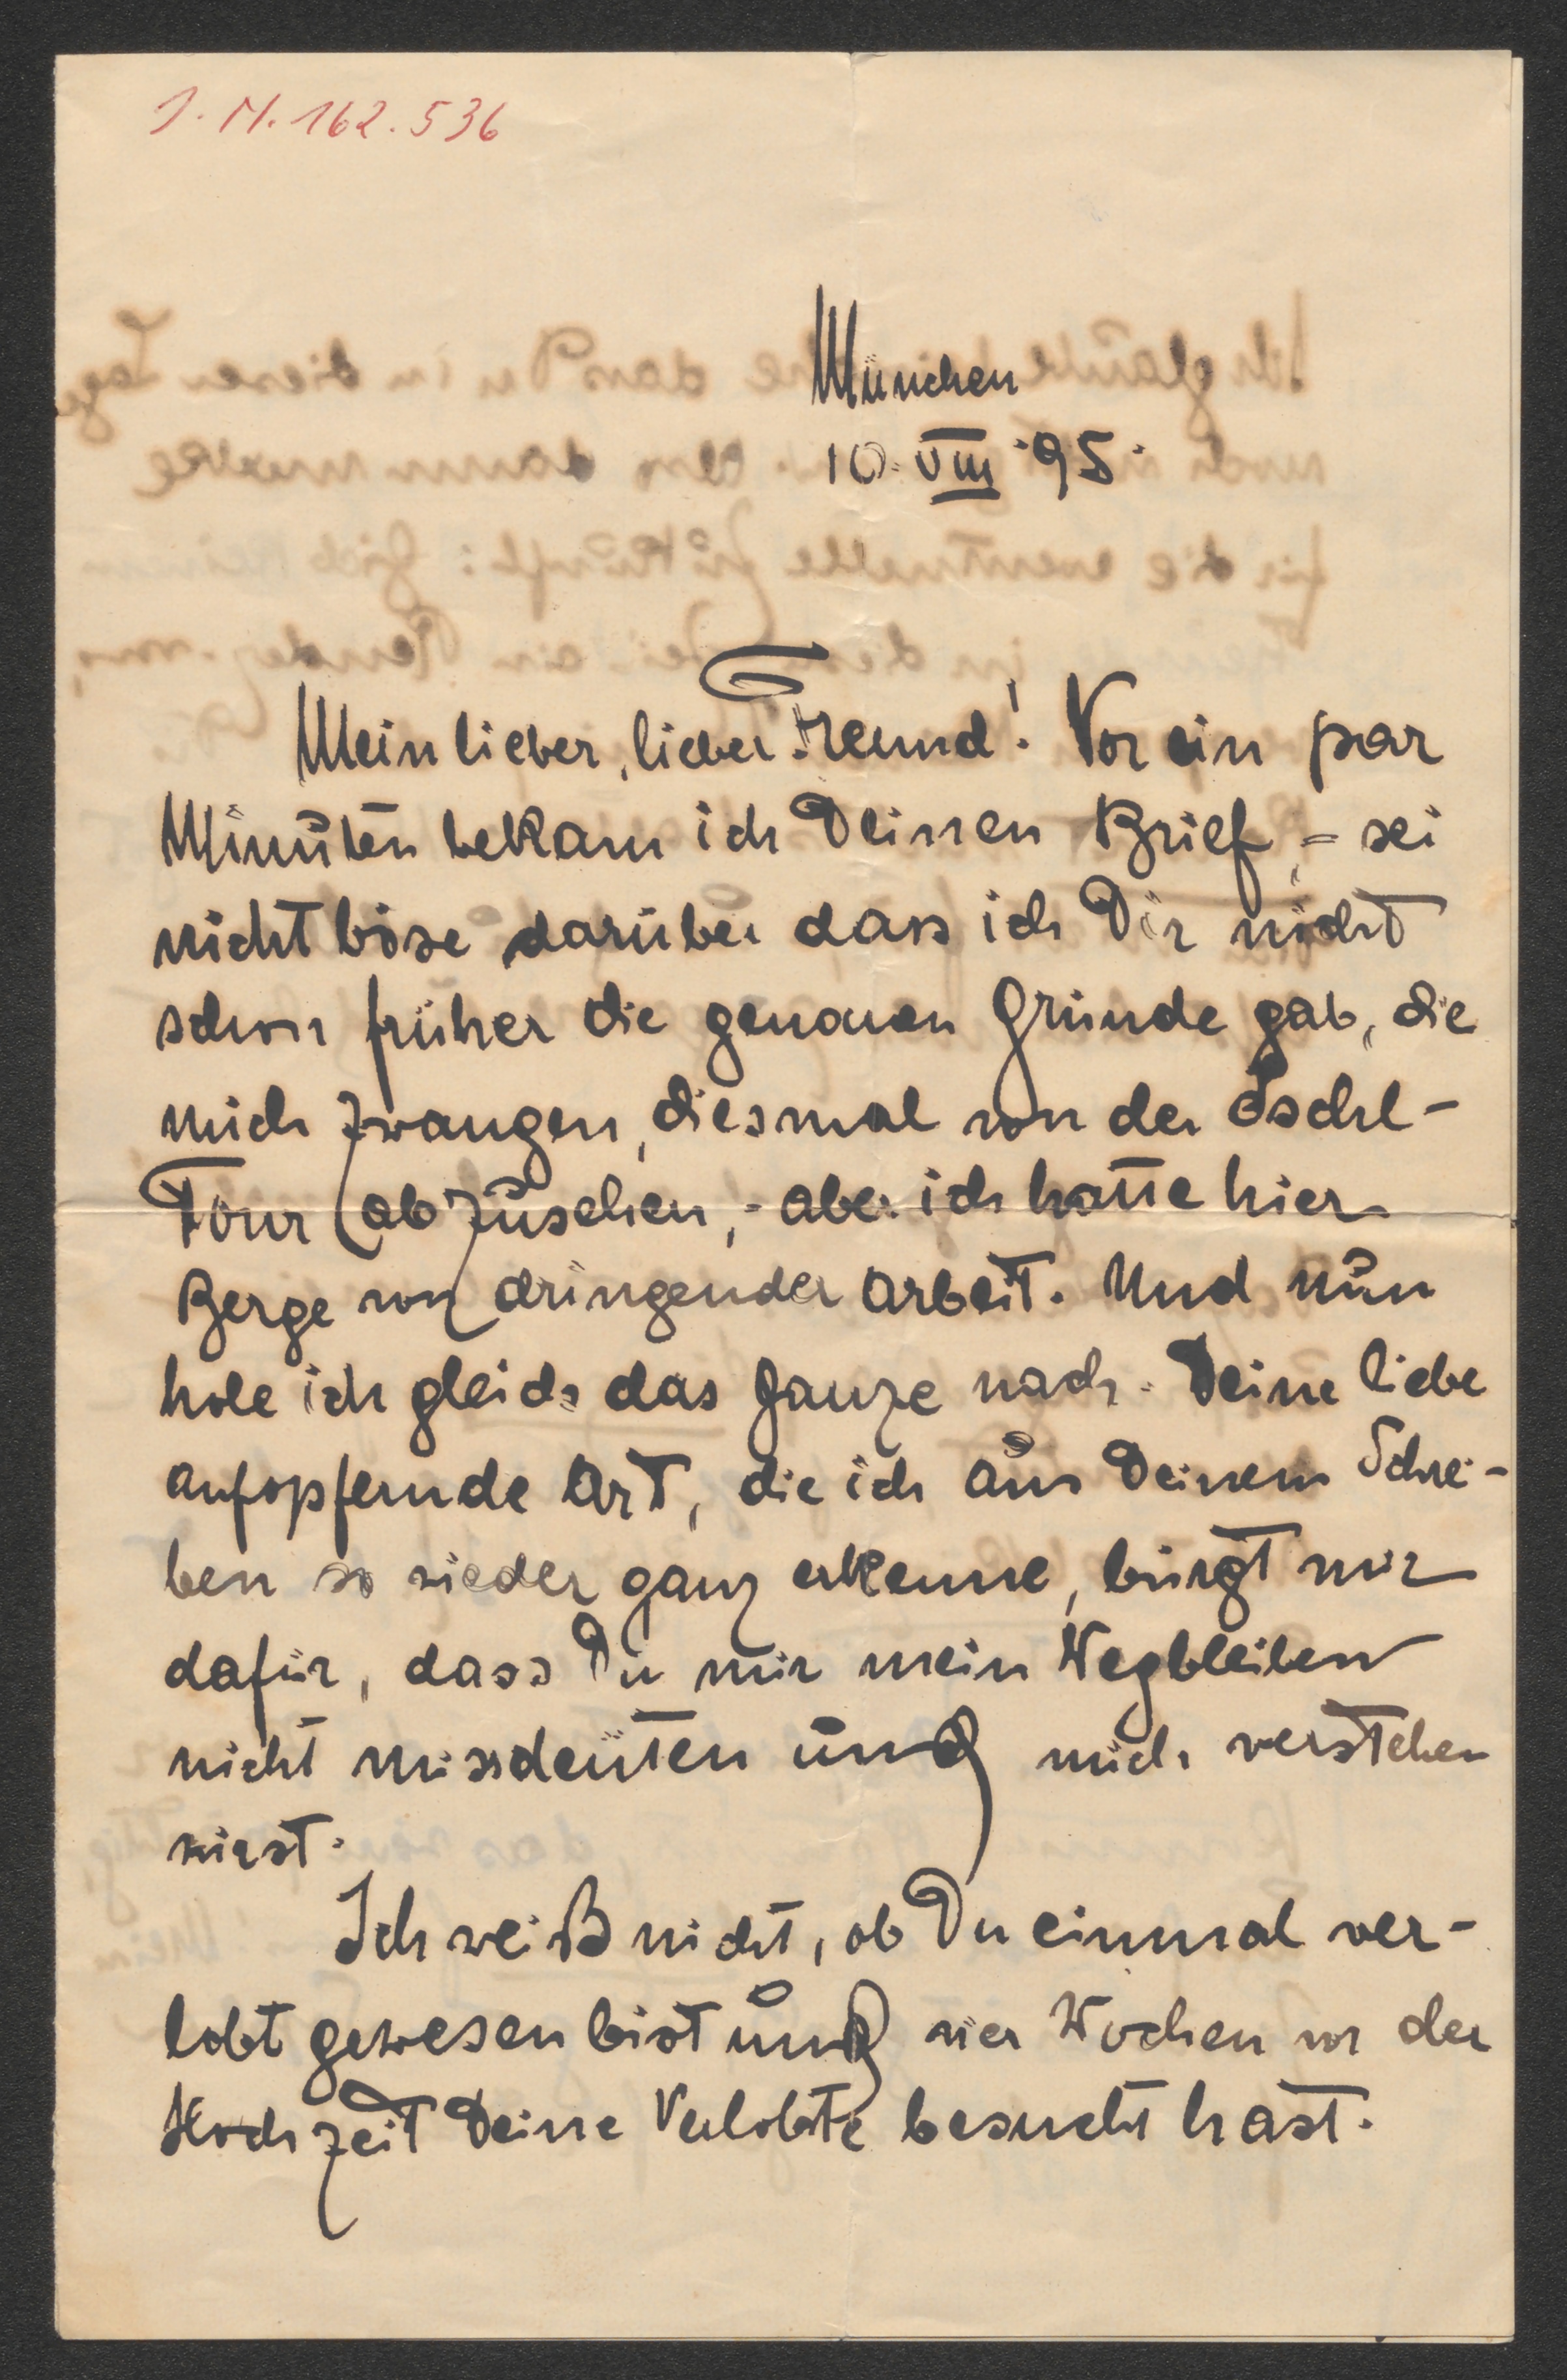 J.N. 162.536
München
10. VIII '95.
Mein lieber, lieber Freund! Vor ein par
Minuten bekam ich Deinen Brief, - sei
nicht böse darüber dass ich Dir nicht
schon früher die genauen Gründe gab, die
mich zwangen, diesmal von der Ischl-
Tour abzusehen, - aber ich hatte hier
Berge von dringender Arbeit. Und nun
hole ich gleich das Ganze nach. Deine liebe
aufopfernde Art, die ich aus Deinem Schrei-
ben so wieder ganz erkenne, bürgt mir
dafür, dass Du mir mein Wegbleiben
nicht missdeuten und mich verstehen
wirst.
Ich weiß nicht, ob Du einmal ver-
lobt gewesen bist und vier Wochen vor der
Hochzeit Deine Verlobte besucht hast.